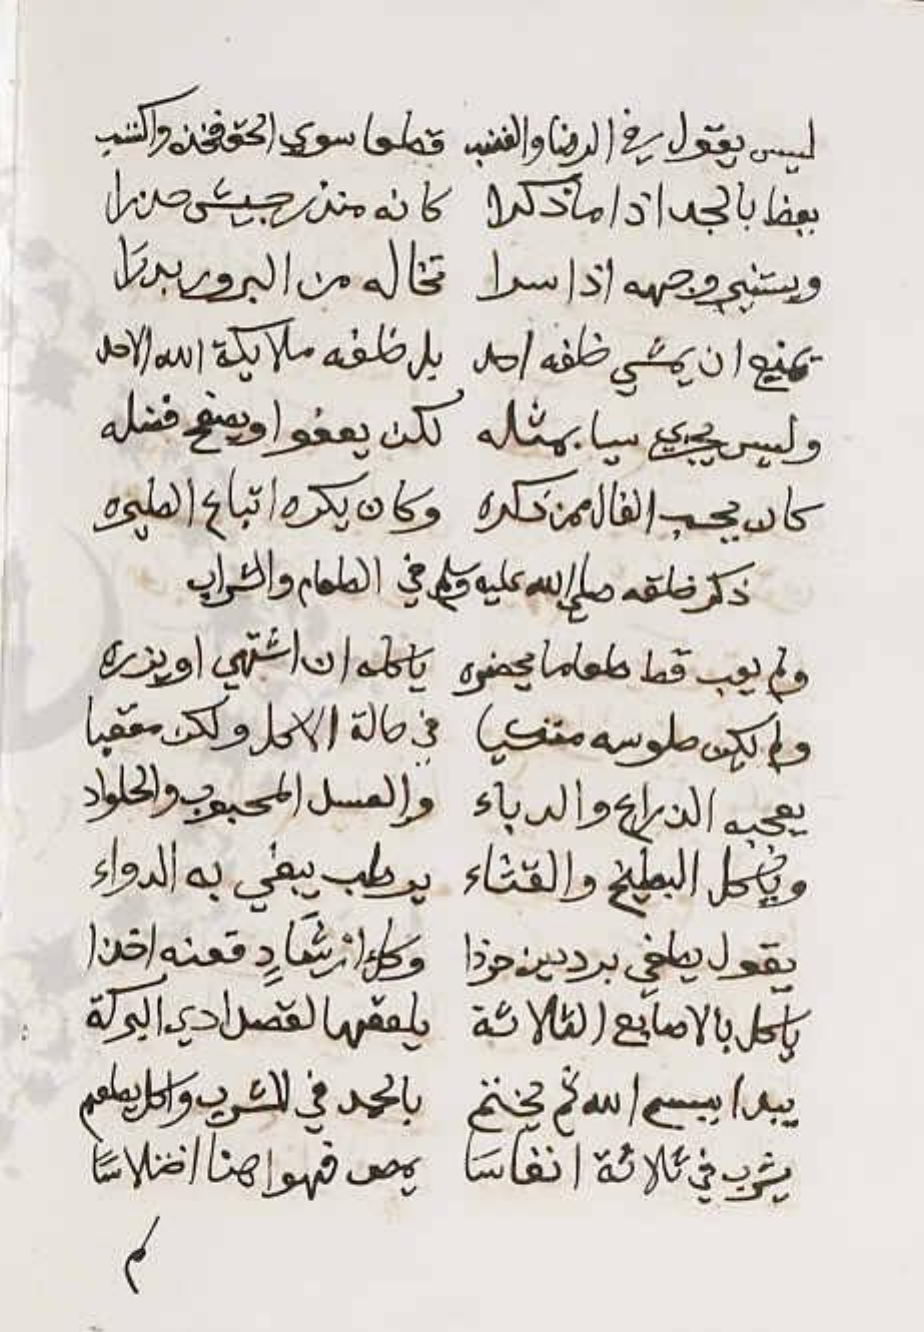 ليس يقول في الرضا والغضب قطعا سوي الحق فخذه واكتب
يعظ بالجد اذا ما ذكرا كانه منذر جيش حذرا
ويستنير وجهه اذا سرا تخاله من البرور بدرَا
تمنيع ان يمشي خلفه احد بل خلفه ملايكة الله الاحد
وليس يجزي سيا بمثله لكن يعفوا ويصفح فضله
كان يحب الفال ممن ذكره وكان يكره اتباع الطيره
ذكر خلقه صلي الله عليه وسلم في الطعام والشراب
ولم يعب قط طعاما يحضره ياكله ان اشتهي او يزره
ولم يكن جلوسه متكيا في حالة الاكل ولكن مقعيا
يعجبه الذراع والدباء والعسل المحبوب والحلواء
وياكل البطيخ والقثاء برطب يبغي به الدواء
يقول يطفي برد بين حرذا وكل ارشادٍ فعنه اخذا
ياكل بالاصابع الثلاثة يلعقها لقصد ادي البركة
يبدا ببسم الله ثم يختم بالحمد في الشرب واكل يطعم
يشرب في ثلاثة انفاسَا يمص فهوا هنا اختلاسًا